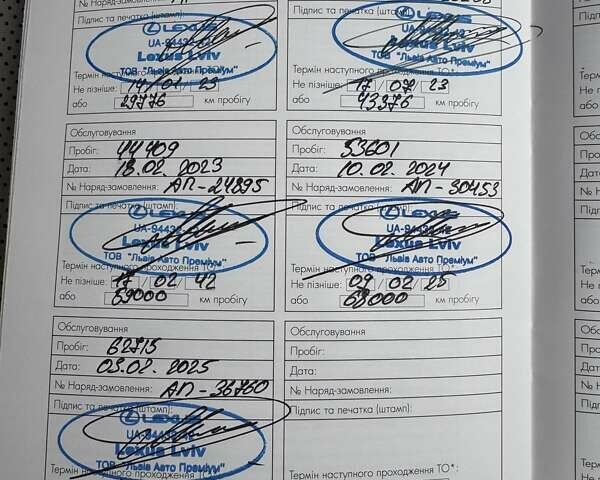 Підпис та печатка (штамп):
LEXUS
UA-84422
Lexus Lviv
ТОВ "Львів Авто Преміум"
Термін наступного
Не пізніше: 14/01/23
або 29776 км пробігу
Підпис та печатка (штамп):
LEXUS
UA-
Lexus Lviv
ТОВ "Львів Авто Преміум"
Термін наступного проходження ТО*:
Не пізніше: 17/07/23
або 43376 км пробігу
Обслуговування
Пробіг: 44409
Дата: 18.02.2023
№ Наряд-замовлення: АП-24895
Підпис та печатка (штамп):
LEXUS
UA-84422
Lexus Lviv
ТОВ "Львів Авто Преміум"
Термін наступного проходження ТО*:
Не пізніше: 17/02/42
або 59000 км пробігу
Обслуговування
Пробіг: 53601
Дата: 10.02.2024
№ Наряд-замовлення: АП-30453
Підпис та печатка (штамп):
LEXUS
UA-84422
Lexus Lviv
ТОВ "Львів Авто Преміум"
Термін наступного проходження ТО*:
Не пізніше: 09/02/25
або 68000 км пробігу
Обслуговування
Пробіг: 62715
Дата: 03.02.2025
№ Наряд-замовлення: АП-36760
Підпис та печатка (штамп):
LEXUS
UA-84422
Lexus Lviv
ТОВ "Львів Авто Преміум"
Термін
Обслуговування
Пробіг:
Дата:
№ Наряд-замовлення:
Підпис та печатка (штамп):
Термін наступного проходження ТО*: